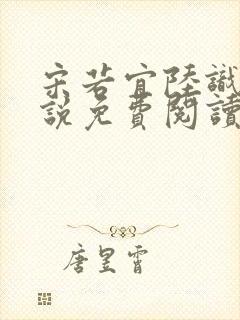 宋若宜陸識
說免費閱讀
唐昱霄